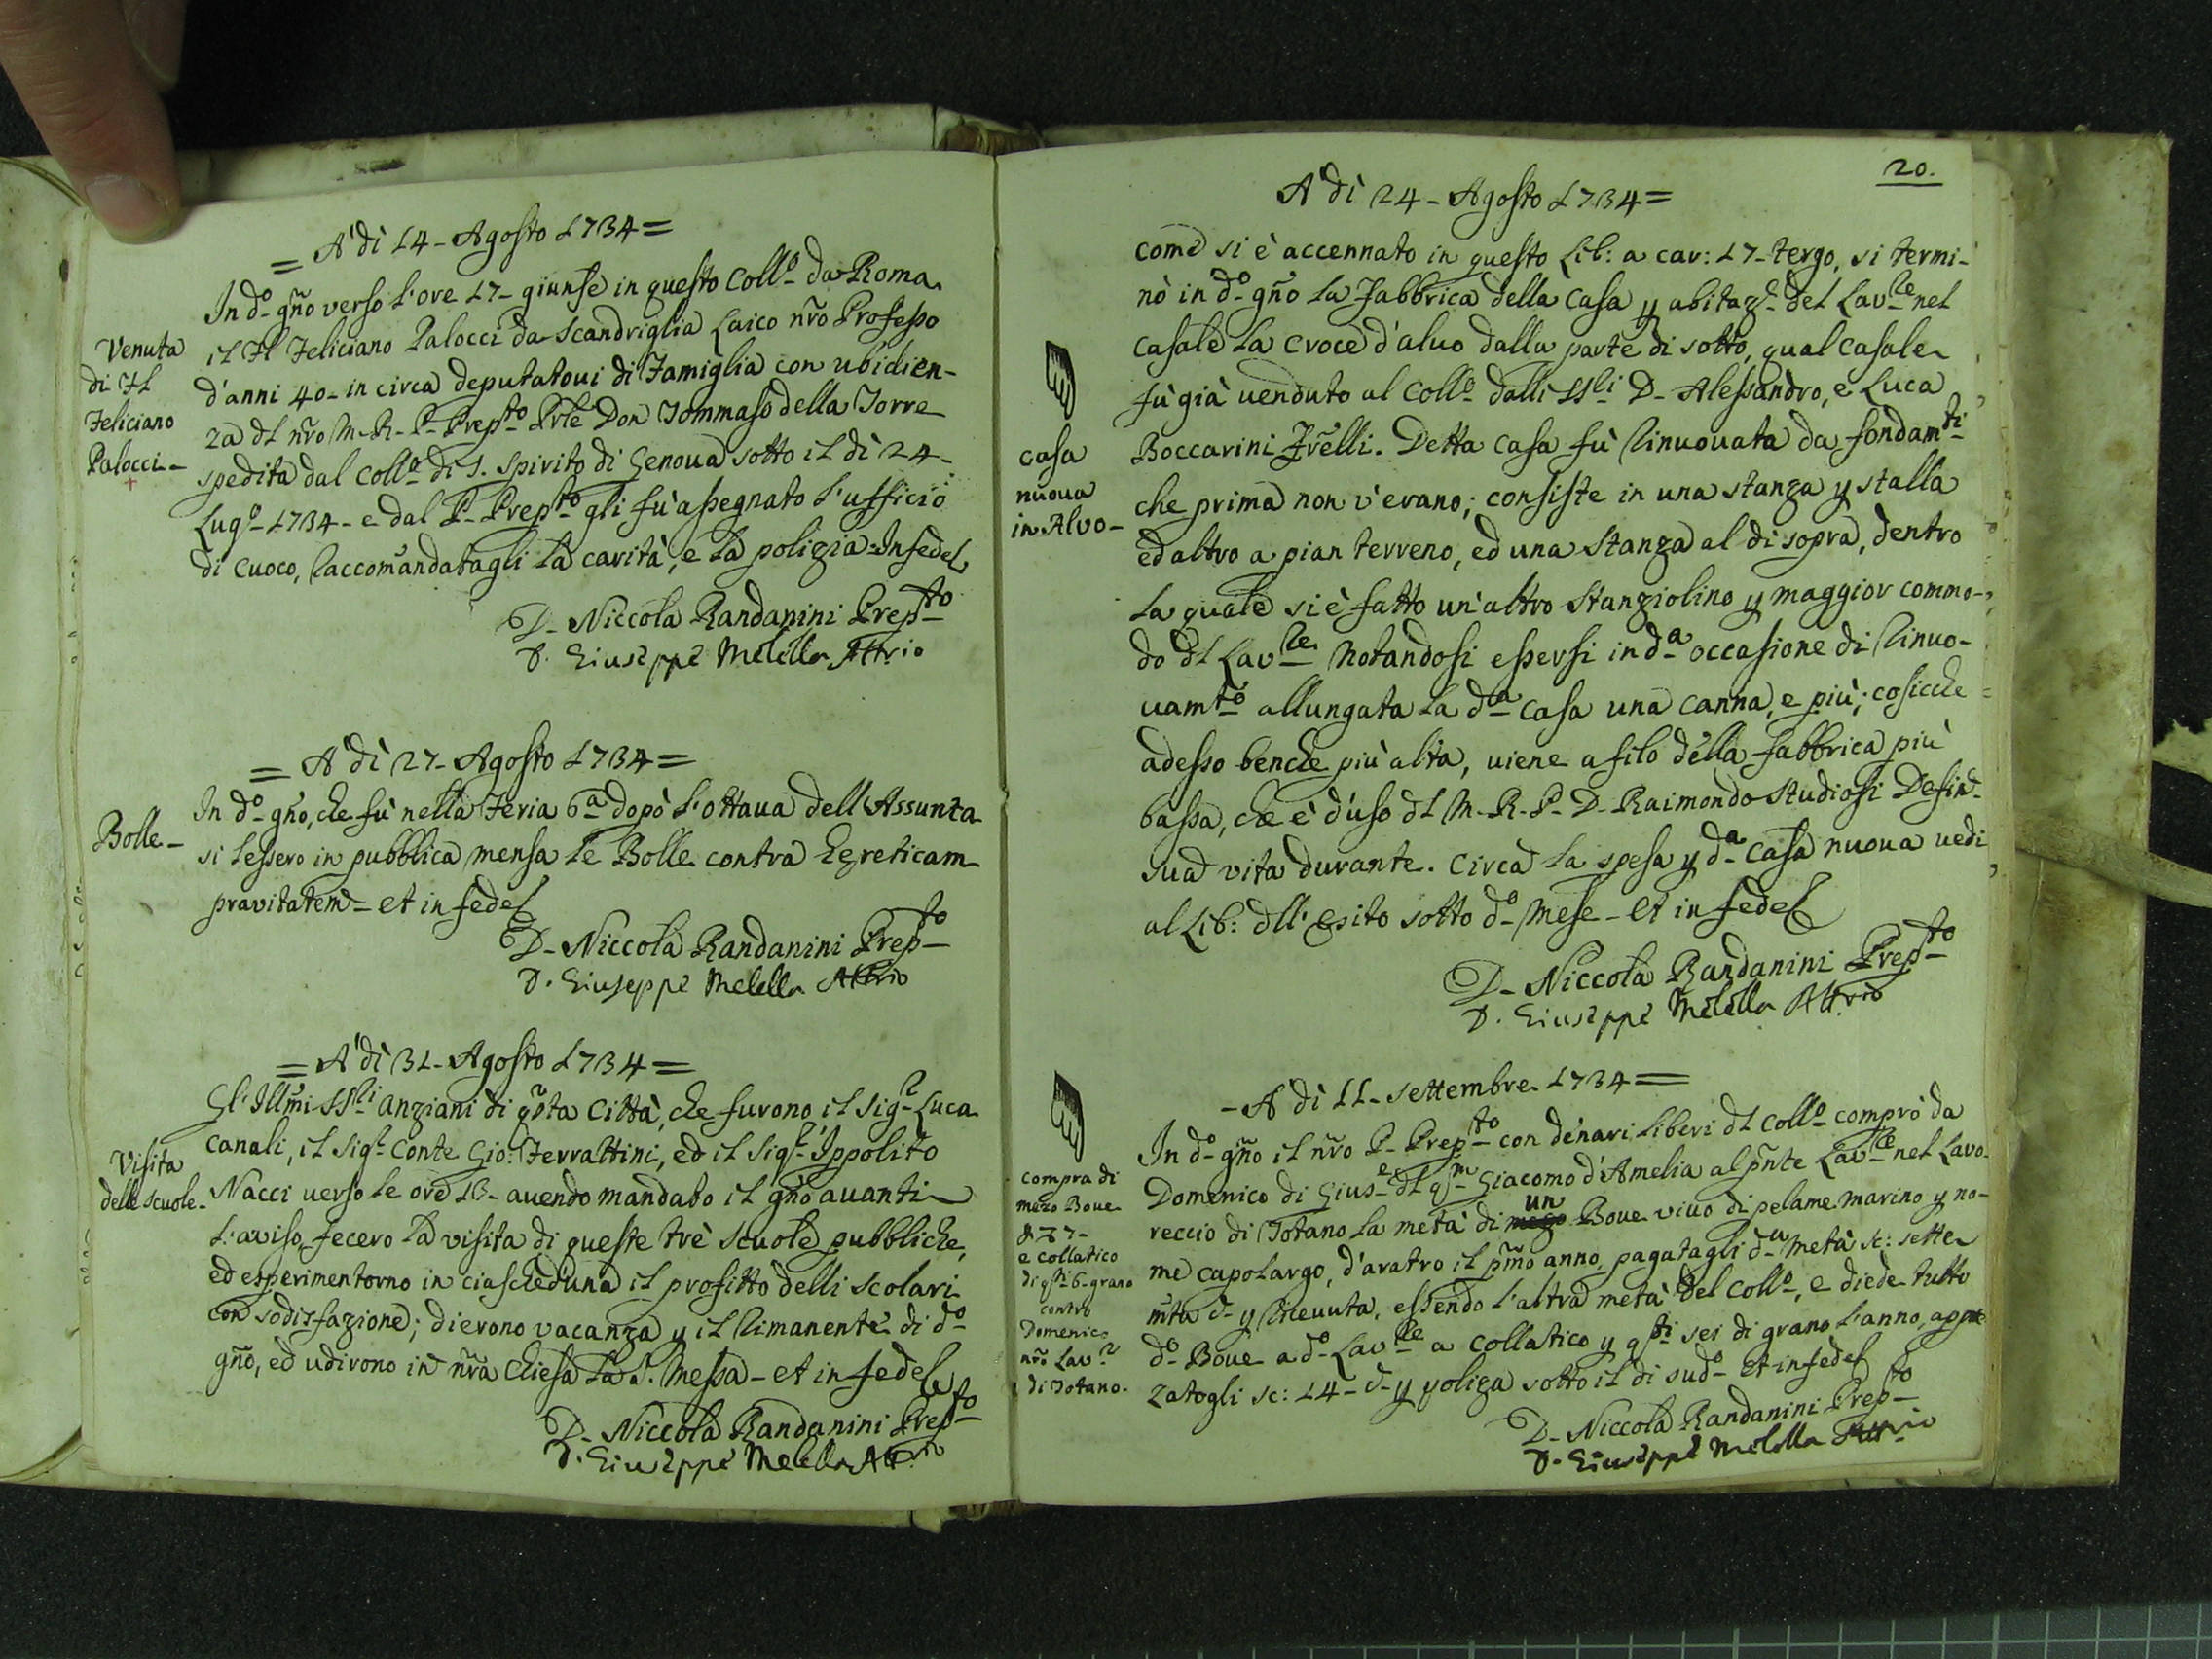 = A' dì 14 - Agosto 1734 =
Venuta
di Fl
Feliciano
Palocci -
In do gño verso l'ore 17 - giunse in questo Collo da Roma
il Fl Feliciano Palocci da Scandriglia Laico nr̃o Professo
d'anni 40 - in circa deputatoui di Famiglia con ubidien-
za dl nr̃o M-R-P-Prepto Pr̃le Don Tommaso della Torre
spedita dal Collo di S. Spirito di Genoua sotto il dì 24 -
Lugo 1734 - e dal P-Prepto gli fù assegnato l'ufficio
di cuoco, raccomandatagli la carità, e la polizia = In fede
D - Niccola Randanini Prepto
D. Giuseppe Melella Attrio
= A' dì 27 - Agosto 1734 =
Bolle -
In do gño, che fù nella Feria 6a dopò l'ottaua dell'Assunta
si lessero in pubblica mensa le Bolle contra Hęreticam
pravitatem - et in fede
D - Niccola Randanini Prepto
D. Giuseppe Melella Attrio
= A' dì 31 - Agosto 1734 =
Visita
delle scuole -
Gl'Illm̃i SSri Anziani di qsta Città, che furono il Sigr Luca
Canali, il Sigr Conte Gio: Ferrattini, ed il Sigr Ippolito
Nacci uerso le ore 13 - auendo mandato il gño auanti
l'aviso, fecero la visita di queste trè scuole pubbliche,
ed esperimentorno in ciascheduna il profitto delli scolari
con sodisfazione; dierono vacanza p il rimanente di do
gño, ed udirono in nr̃a Chiesa la S. Messa - et in fede
D - Niccola Randanini Prepto
D. Giuseppe Melella Attrio
20.
A' dì 24 - Agosto 1734 =
casa
nuoua
in Alvo -
come si è accennato in questo Lib: a car: 17 - tergo, si termi-
nò in do gño la Fabbrica della Casa p abitaze del Lavle nel
Casale la Croce d'aluo dalla parte di sotto, qual casale
fù già uenduto al Collo dalli SSri D - Alessandro, e Luca
Boccarini Fr̃elli. Detta casa fù rinuouata da fondamti
che prima non v'erano; consiste in una stanza p stalla
ed altro a pian terreno, ed una stanza al di sopra, dentro
la quale si è fatto un'altro stanziolino p maggior commo-
do dl Lavle notandosi essersi in da occasione di rinuo-
uamto allungata la da casa una canna, e più; cosicche
adesso benche più alta, uiene a filo della fabbrica più
bassa, che è d'uso dl M-R-P-D-Raimondo Studiosi Defin-
sua vita durante. Circa la spesa p da casa nuoua uedi
al Lib: dll'esito sotto do Mese - Et in fede
D - Niccola Randanini Prepto
D. Giuseppe Melella Attrio
- A' dì 11 - Settembre 1734 =
compra di
mezo Boue
7 -
e collatico
di qrti 6 - grano
contro
Domenico
nr̃o Lavre
di Totano.
In do gño il nr̃o P-Prepto con denari liberi dl Collo comprò da
Domenico di Giuse dl qm Giacomo d'Amelia al pñte Lavle nel Lavo-
reccio di Totano la metà di mezo un Boue viuo di pelame marino p no-
me capolargo, d'aratro il pm̃o anno, pagatagli da metà sc: sette
mta d - p riceuuta, essendo l'altra metà del Collo, e diede tutto
do Boue a do Lavle a collatico p qrti sei di grano l'anno, appre
zatogli sc: 14 - d - p poliza sotto il dì sudo Et in fede
D - Niccola Randanini Prepto
D. Giuseppe Melella Attrio